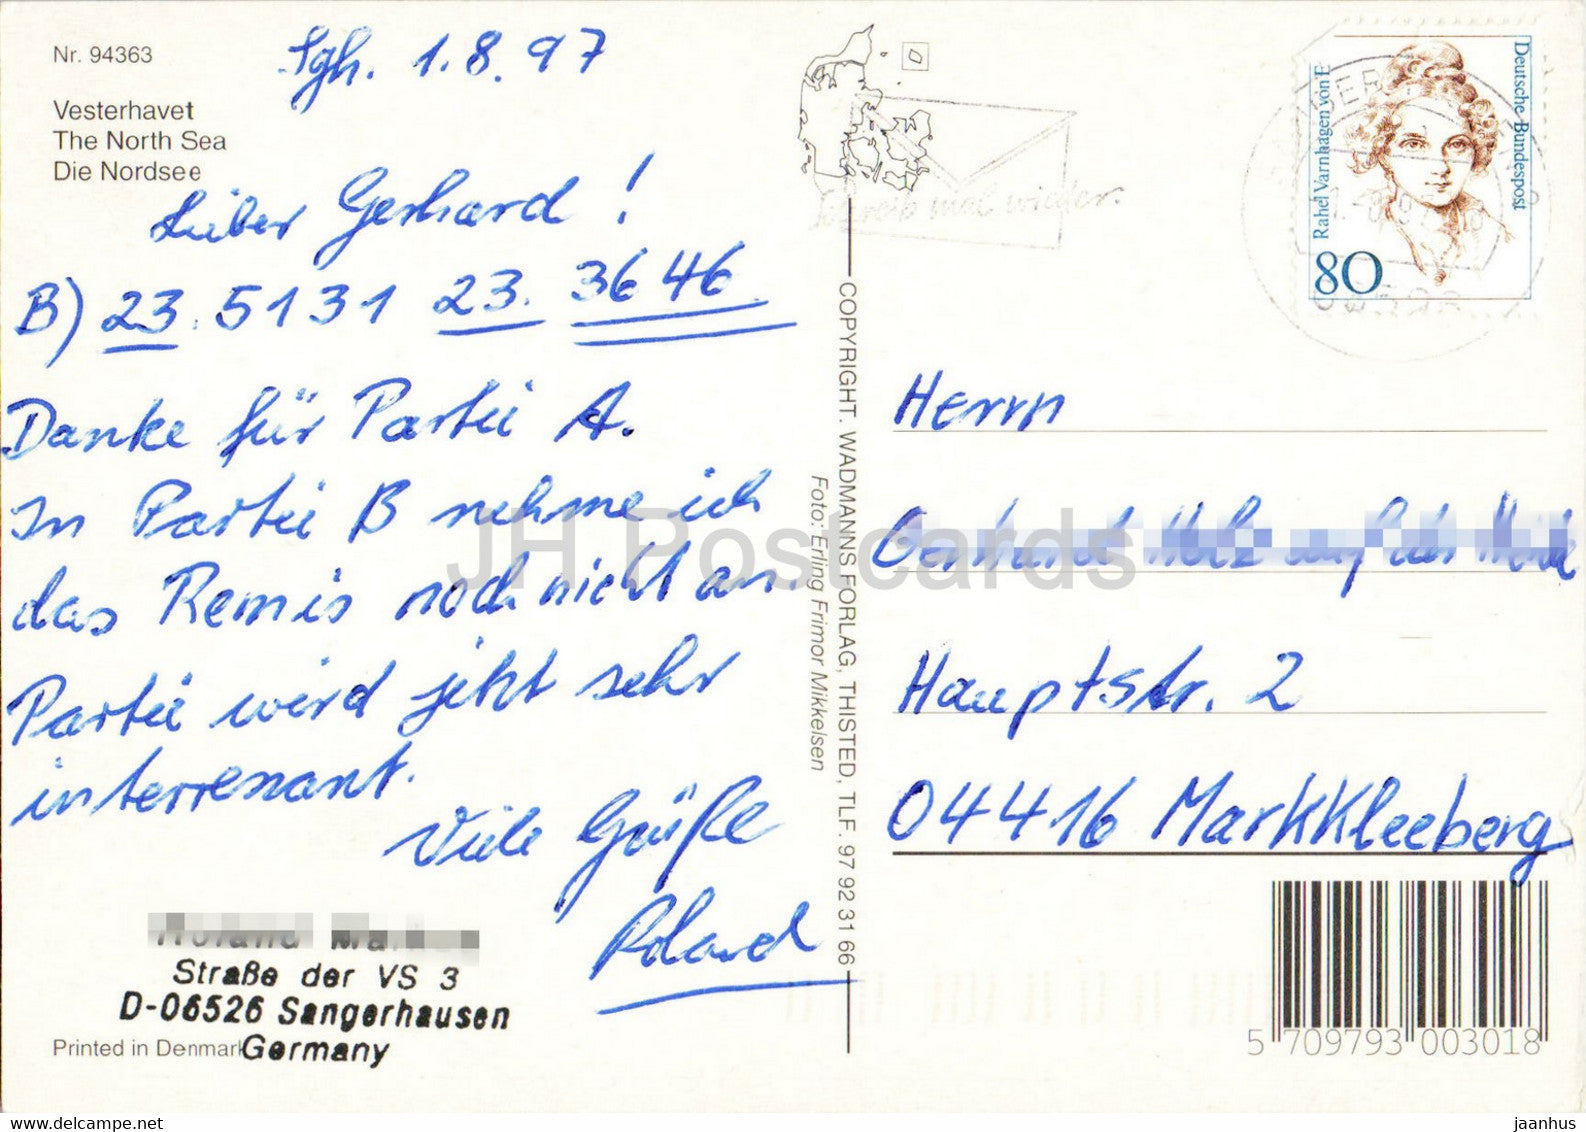 Nr. 94363
Vesterhavet
The North Sea
Die Nordsee
Sgh. 1.8.97
Lieber Gerhard!
B) 23. 5131 23. 3646
Danke für Partie A.
In Partie B nehme ich
das Remis noch nicht an.
Partie wird jetzt sehr
interresant.
Viele Grüße
Roland
Straße der VS 3
D-06526 Sangerhausen
Germany
Printed in Denmark
COPYRIGHT. WADMANNS FORLAG, THISTED, TLF. 97 92 31 66
Foto: Erling Frimor Mikkelsen
Schreib mal wieder.
Deutsche Bundespost
Rahel Varnhagen von E
80
Herrn
Gerhard auf der
Hauptstr. 2
04416 Markkleeberg
5 709793 003018
JH Postcards
delcampe.net
jaanhus